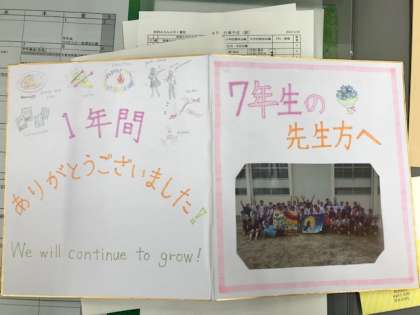 1年間
ありがとうございました!
We will continue to grow!
7年生の
先生方へ